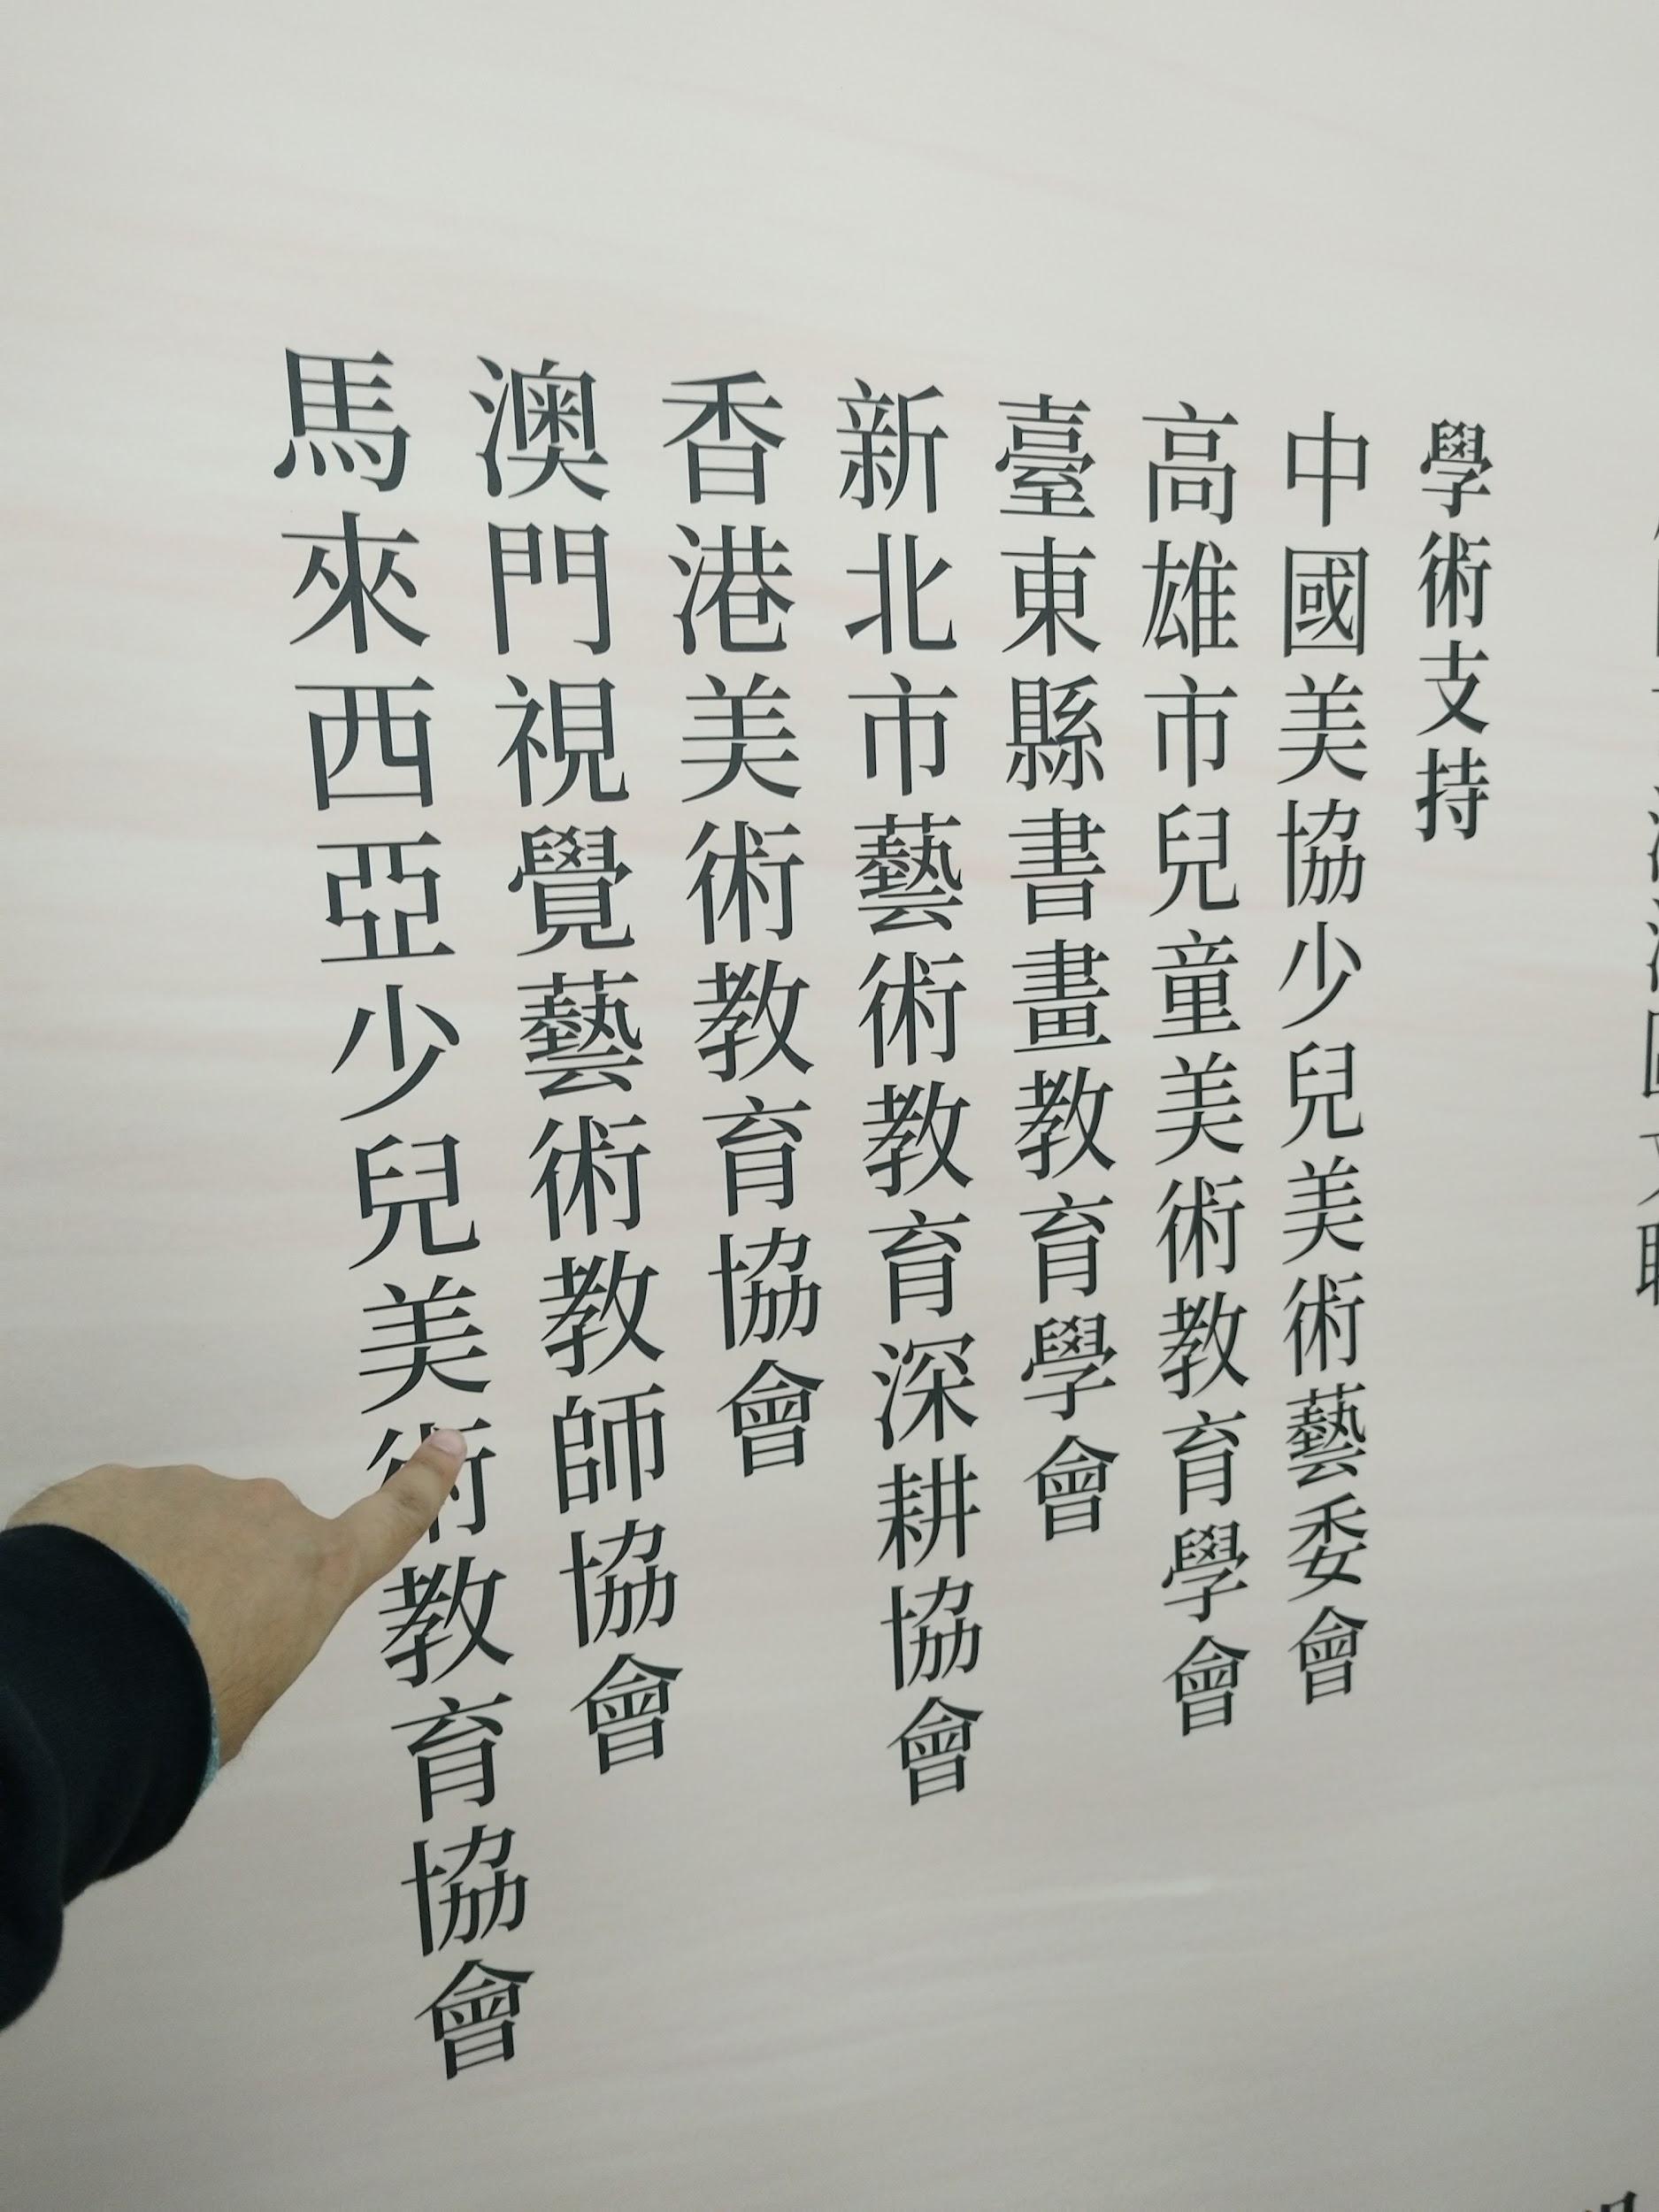 學術支持
中國美協少兒美術藝委會
高雄市兒童美術教育學會
臺東縣書畫教育學會
新北市藝術教育深耕協會
香港美術教育協會
澳門視覺藝術教師協會
馬來西亞少兒美術教育協會